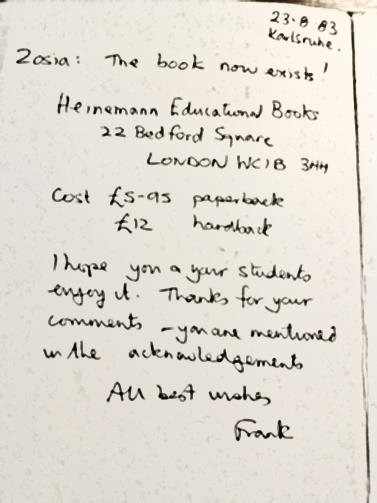 23.8.83
Karlsruhe.
Zosia: The book now exists!
Heinemann Educational Books
22 Bedford Square
LONDON WC1B 3HH
Cost £5-95 paperback
£12 hardback
I hope you & your students
enjoy it. Thanks for your
comments - you are mentioned
in the acknowledgements
All best wishes,
Frank